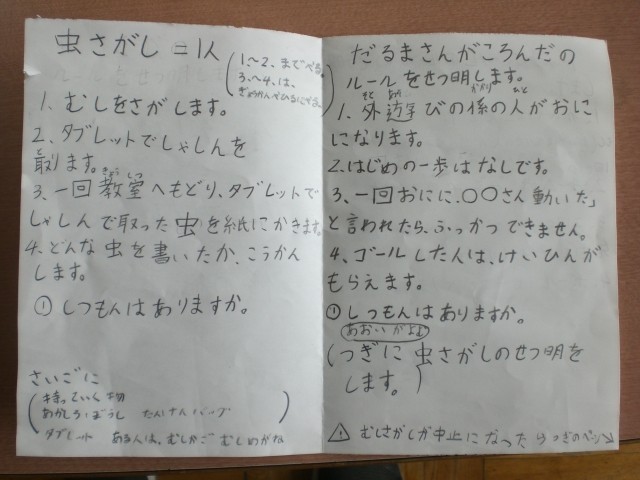 虫さがし=1人
(1~2、まではべる。
3、~4、は、
ぎょうかんへひるにする。)
1、むしをさがします。
2、タブレットでしゃしんを
取ります。
3、一回教室へもどり、タブレットで
しゃしんで取った虫を紙にかきます。
4、どんな虫を書いたか、こうかん
します。
①しつもんはありますか。
さいごに
(持っていく物
あかしろぼうし たんけんバッグ
タブレット ある人は、むしかご むしめがね)
だるまさんがころんだの
ルールをせつ明します。
1、外遊びの係の人がおに
になります。
2、はじめの一歩はなしです。
3、一回おにに、○○さん動いた」
と言われたら、ふっかつできません。
4、ゴールした人は、けいひんが
もらえます。
①しつもんはありますか。
あおいがよむ
(つぎに虫さがしのせつ明を
します。)
⚠むしさがしが中止になったらつぎのページ↘